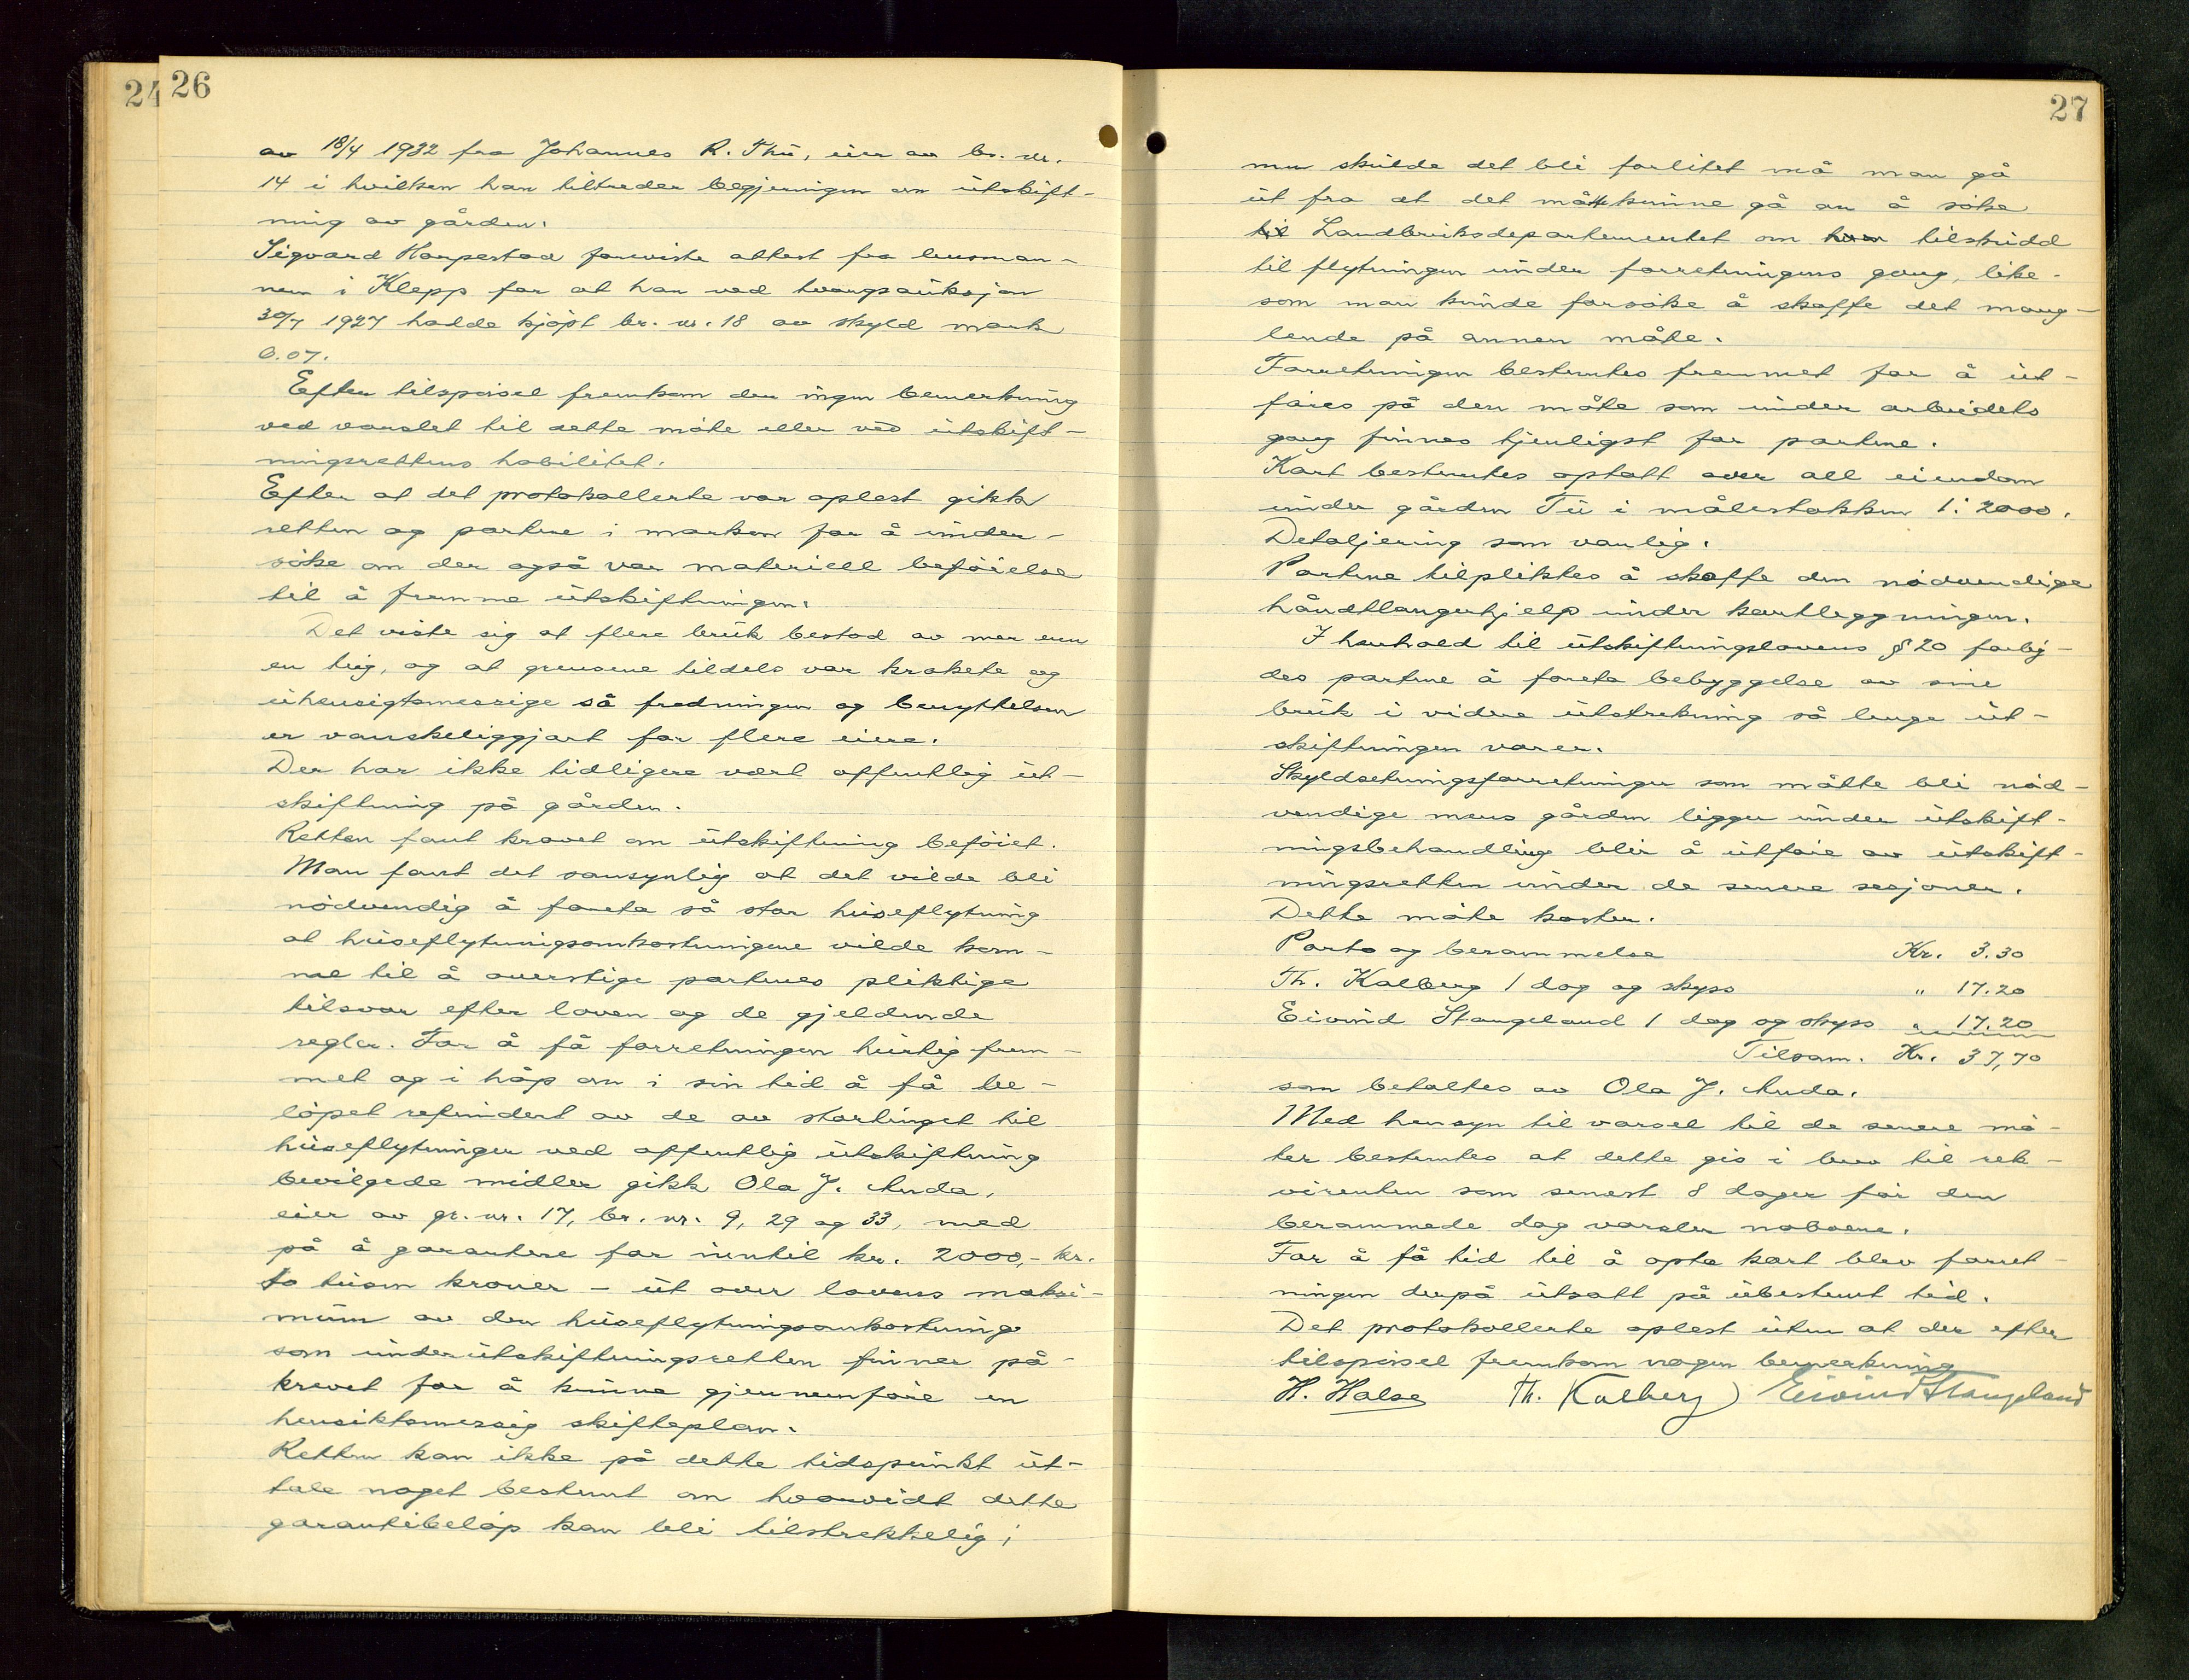 24 26
av 18/4 1932 fra Johannes R. Thu, eier av br. nr.
14 i hvilken han tiltreder begjeringen om utskift-
ning av gården.
Sigvard Horpestad foreviste attest fra lensman-
nen i Klepp for at han ved tvangsauksjon
30/7 1927 hadde kjøpt br. nr. 18 av skyld mark
0.07.
Efter tilspørsel fremkom der ingen bemerkning
ved varslet til dette møte eller ved utskift-
ningsrettens habilitet.
Efter at det protokollerte var oplest gikk
retten og partene i marken for å under-
søke om der også var materiell beføielse
til å fremme utskiftningen.
Det viste sig at flere bruk bestod av mer enn
en teig, og at grensene tildels var krokete og
uhensigtsmessige så fredningen og benyttelsen
er vanskeliggjort for flere eiere.
Der har ikke tidligere vært offentlig ut-
skiftning på gården.
Retten fant kravet om utskiftning beføiet.
Man fant det sansynlig at det vilde bli
nødvendig å foreta så stor huseflytning
at huseflytningsomkostningene vilde kom-
me til å overstige partenes pliktige
tilsvar efter loven og de gjeldende
regler. For å få forretningen hurtig frem-
met og i håp om i sin tid å få be-
løpet refundert av de av stortinget til
huseflytninger ved offentlig utskiftning
bevilgede midler gikk Ola J. Anda,
eier av gr. nr. 17, br. nr. 9, 29 og 33, med
på å garantere for inntil kr. 2000,- kr.
to tusen kroner - ut over lovens maksi-
mum av den huseflytningsomkostning
som underutskiftningsretten finner på-
krevet for å kunne gjennemføre en
hensiktsmessig skifteplan.
Retten kan ikke på dette tidspunkt ut-
tale noget bestemt om hvorvidt dette
garantibeløp kan bli tilstrekkelig;
27
men skulde det bli forlitet må man gå
ut fra at det måtte kunne gå an å søke
til Landbruksdepartementet om tilskudd
til flytningen under forretningens gang, like-
som man kunde forsøke å skaffe det mang-
lende på annen måte.
Forretningen bestemtes fremmet for å ut-
føres på den måte som under arbeidets
gang finnes tjenligst for partene.
Kart bestemtes optatt over all eiendom
under gården Tu i målestokken 1:2000.
Detaljering som vanlig.
Partene tilpliktes å skaffe den nødvendige
håndtlangerhjelp under kartleggningen.
I henhold til utskiftningslovens § 20 forby-
des partene å foreta bebyggelse av sine
bruk i videre utstrekning så lenge ut-
skiftningen varer.
Skyldsetningsforretninger som måtte bli nød-
vendige mens gården ligger under utskift-
ningsbehandling blir å utføre av utskift-
ningsretten under de senere sesjoner.
Dette møte koster.
Porto og berammelse Kr. 3.30
Th. Kalberg 1 dag og skyss " 17.20
Eivind Stangeland 1 dag og skyss " 17.20
Tilsam. Kr. 37,70
som betaltes av Ola J. Anda.
Med hensyn til varsel til de senere mø-
ter bestemtes at dette gis i brev til rek-
virenten som senest 8 dager før den
berammede dag varsler naboene.
For å få tid til å opta kart blev forret-
ningen derpå utsatt på ubestemt tid.
Det protokollerte oplest uten at der efter
tilspørsel fremkom nogen bemerkning
H. Halse Th. Kalberg Eivind Stangeland